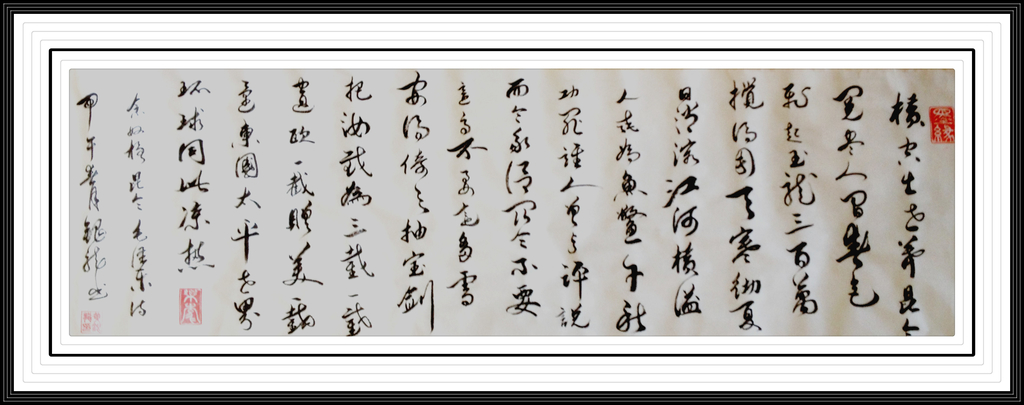 横空出世莽昆仑
阅尽人间春色
飞起玉龙三百萬
搅得周天寒彻夏
日消溶江河横溢
人或为鱼鳖千秋
功罪谁人曾与評説
而今我谓昆仑不要
這高不要這多雪
安得倚天抽宝剑
把汝裁為三截一截
遺欧一截赠美一截
还東國太平世界
环球同此凉热
念奴娇昆仑毛泽东诗
甲午春月银龙书